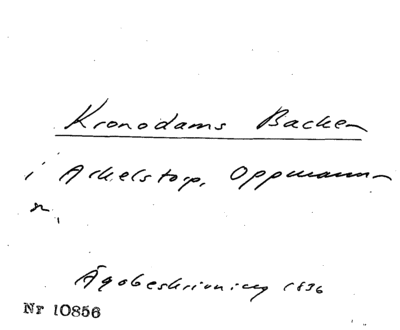 Kronodams Backen
i Arkelstorp, Oppmanna
sn.
Ägobeskrivning 1836
Nr 10856